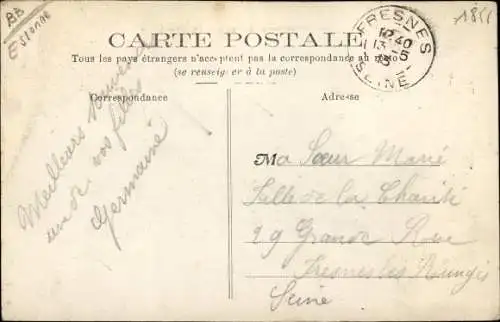 BB
Essonne
1851
FRESNES
12 40
13 - 5
SEINE
CARTE POSTALE
Tous les pays étrangers n'acceptent pas la correspondance au
(se renseigner à la poste)
Correspondance
Adresse
Meilleurs souvenirs
une de vos filles
Germaine
Ma Sœur Marie
Fille de la Charité
29 Grande Rue
Fresnes les Rungis
Seine